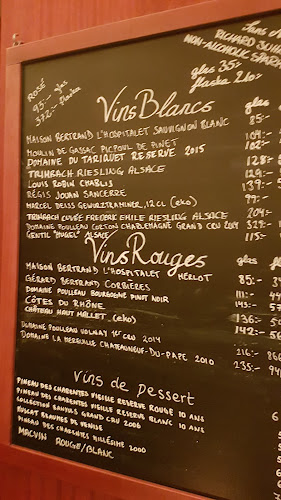 Sans A
RICHARD JUH
NON-ALCOHOLIC SPAR
glas 35:-
flaska 210:-
ROSÉ
93:- glas
372:- flaska
Vins Blancs
glas
MAISON BERTRAND L'HOSPITALET SAUVIGNON BLANC 85:-
MOULIN DE GASSAC PICPOUL DE PINET 109:-
DOMAINE DU TARIQUET RESERVE 2015 102:-
TRIMBACH RIESLING ALSACE 128:-
LOUIS ROBIN CHABLIS 129:-
RÉGIS JOUAN SANCERRE 139:-
MARCEL DEISS GEWURZTRAMINER, 12CL (eko) 99:-
TRIMBACH CUVÉE FREDERIC EMILE RIESLING ALSACE 204:-
DOMAINE POULLEAU CORTON CHARLEMAGNE GRAND CRU 2014 329:-
GENTIL "HUGEL" ALSACE 115:-
Vins Rouges
glas
MAISON BERTRAND L'HOSPITALET MERLOT 85:-
GÉRARD BERTRAND CORBIÈRES 111:-
DOMAINE POULLEAU BOURGOGNE PINOT NOIR 145:-
CÔTES DU RHÔNE 136:-
CHÂTEAU HAUT MALLET (eko) 142:-
DOMAINE POULLEAU VOLNAY 1er CRU 2014 216:-
DOMAINE LA MEREUILLE CHATEAUNEUF-DU-PAPE 2010 235:-
Vins de Dessert
PINEAU DES CHARENTES VIEILLE RESERVE ROUGE 10 ANS
PINEAU DES CHARENTES VIEILLE RESERVE BLANC 10 ANS
COLLECTION BANYULS GRAND CRU 2006
MUSCAT BEAUMES DE VENISE
PINEAU DES CHARENTES MILLÉSIME 2000
MACVIN ROUGE/BLANC